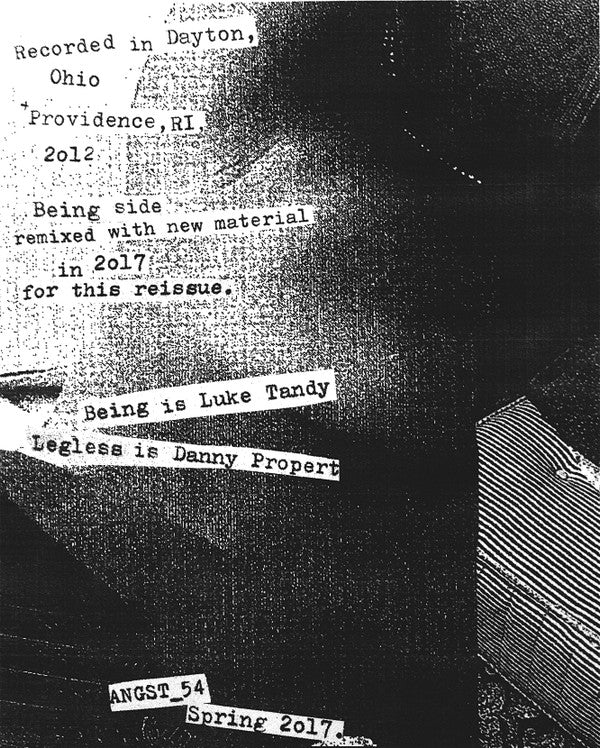 Recorded in Dayton,
Ohio
+
Providence,RI.
2o12
Being side
remixed with new material
in 2o17
for this reissue.
Being is Luke Tandy
Legless is Danny Propert
ANGST_54
Spring 2o17.